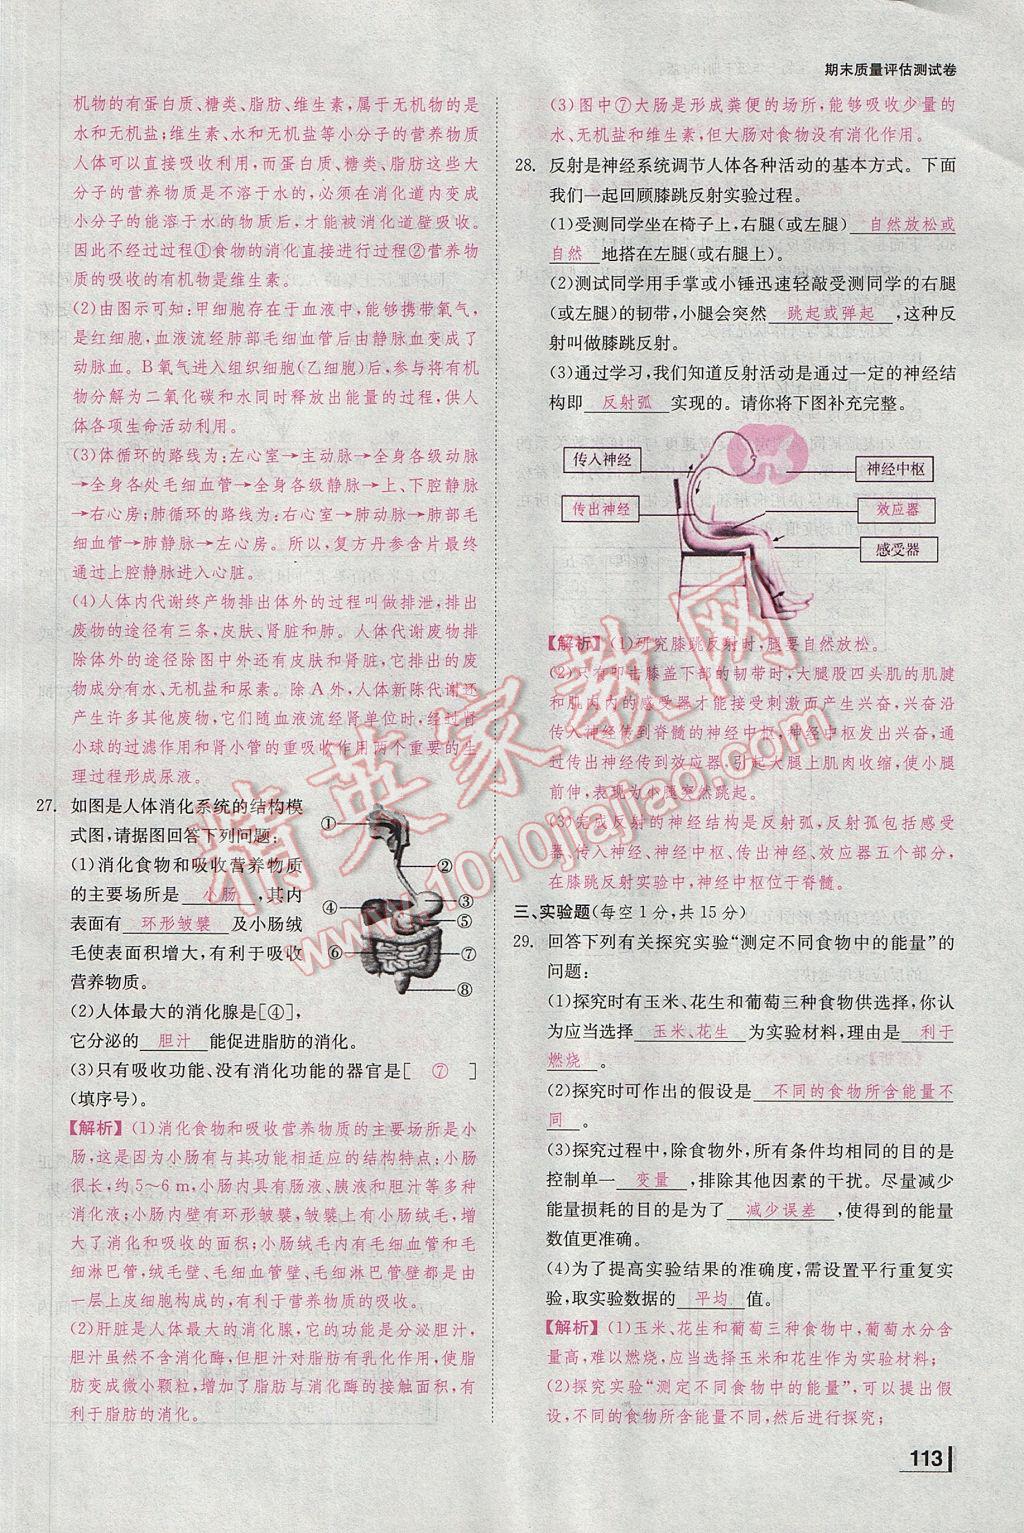 期末质量评估测试卷
机物的有蛋白质、糖类、脂肪、维生素,属于无机物的是
水和无机盐;维生素、水和无机盐等小分子的营养物质
人体可以直接吸收利用,而蛋白质、糖类、脂肪这些大
分子的营养物质是不溶于水的,必须在消化道内变成
小分子的能溶于水的物质后,才能被消化道壁吸收。
因此不经过过程①食物的消化直接进行过程②营养物
质的吸收的有机物是维生素。
(2)由图示可知:甲细胞存在于血液中,能够携带氧气,
是红细胞,血液流经肺部毛细血管后由静脉血变成了
动脉血。B氧气进入组织细胞(乙细胞)后,参与将有机
物分解为二氧化碳和水同时释放出能量的过程,供人
体各项生命活动利用。
(3)体循环的路线为:左心室→主动脉→全身各级动脉
→全身各处毛细血管→全身各级静脉→上、下腔静脉
→右心房;肺循环的路线为:右心室→肺动脉→肺部毛
细血管→肺静脉→左心房。所以,复方丹参含片最终
通过上腔静脉进入心脏。
(4)人体内代谢终产物排出体外的过程叫做排泄,排出
废物的途径有三条,皮肤、肾脏和肺。人体代谢废物
排除体外的途径除图中外还有皮肤和肾脏,它们排出的
废物成分有水、无机盐和尿素。除A外,人体新陈代谢还
产生许多其他废物,它们随血液流经肾单位时,经肾
小球的过滤作用和肾小管的重吸收作用两个重要的生
理过程形成尿液。
27. 如图是人体消化系统的结构模
式图,请据图回答下列问题:
(1)消化食物和吸收营养物质
的主要场所是 小肠 ,其内
表面有 环形皱襞 及小肠绒
毛使表面积增大,有利于吸收
营养物质。
(2)人体最大的消化腺是[④],
它分泌的 胆汁 能促进脂肪的消化。
(3)只有吸收功能、没有消化功能的器官是[ ⑦ ]
(填序号)。
①
②
③
④
⑤
⑥
⑦
⑧
【解析】(1)消化食物和吸收营养物质的主要场所是小
肠,这是因为小肠有与其功能相适应的结构特点;小肠
很长,约5~6 m,小肠内具有肠液、胰液和胆汁等多种
消化液;小肠内壁有环形皱襞,皱襞上有小肠绒毛,增
大了消化和吸收的面积;小肠绒毛内有毛细血管和毛
细淋巴管,绒毛壁、毛细血管壁、毛细淋巴管壁都是由
一层上皮细胞构成的,有利于营养物质的吸收。
(2)肝脏是人体最大的消化腺,它的功能是分泌胆汁,
胆汁虽然不含消化酶,但胆汁对脂肪有乳化作用,使脂
肪变成微小颗粒,增加了脂肪与消化酶的接触面积,有
利于脂肪的消化。
(3)图中⑦大肠是形成粪便的场所,能够吸收少量的
水、无机盐和维生素,但大肠对食物没有消化作用。
28. 反射是神经系统调节人体各种活动的基本方式。下面
我们一起回顾膝跳反射实验过程。
(1)受测同学坐在椅子上,右腿(或左腿) 自然放松或
自然 地搭在左腿(或右腿上)。
(2)测试同学用手掌或小锤迅速轻敲受测同学的右腿
(或左腿)的韧带,小腿会突然 跳起或弹起 ,这种反
射叫做膝跳反射。
(3)通过学习,我们知道反射活动是通过一定的神经结
构即 反射弧 实现的。请你将下图补充完整。
传入神经
传出神经
神经中枢
效应器
感受器
【解析】(1)研究膝跳反射时,腿要自然放松。
(2)只有叩击膝盖下部的韧带时,大腿股四头肌的肌腱
和肌肉内的感受器才能接受到刺激而产生兴奋,兴奋沿
传入神经传到脊髓的神经中枢,神经中枢发出兴奋,通
过传出神经传到效应器,效应器中大腿上肌肉收缩,使小腿
前伸,表现为小腿突然跳起。
(3)完成反射的神经结构是反射弧,反射弧包括感受
器、传入神经、神经中枢、传出神经、效应器五个部分,
在膝跳反射实验中,神经中枢位于脊髓。
三、实验题(每空1分,共15分)
29. 回答下列有关探究实验“测定不同食物中的能量”的
问题:
(1)探究时有玉米、花生和葡萄三种食物供选择,你认
为应当选择 玉米、花生 为实验材料,理由是 利于
燃烧 。
(2)探究时可作出的假设是 不同的食物所含能量不
同 。
(3)探究过程中,除食物外,所有条件均相同的目的是
控制单一 变量 ,排除其他因素的干扰。尽量减少
能量损耗的目的是为了 减少误差 ,使得到的能量
数值更准确。
(4)为了提高实验结果的准确度,需设置平行重复实
验,取实验数据的 平均 值。
【解析】(1)玉米、花生和葡萄三种食物中,葡萄水分含
量高,难以燃烧,应当选择玉米和花生作为实验材料;
(2)探究实验“测定不同食物中的能量”,可以提出假
设,不同的食物所含能量不同,然后进行探究;
113
精英家教网
www.1010jiajiao.com